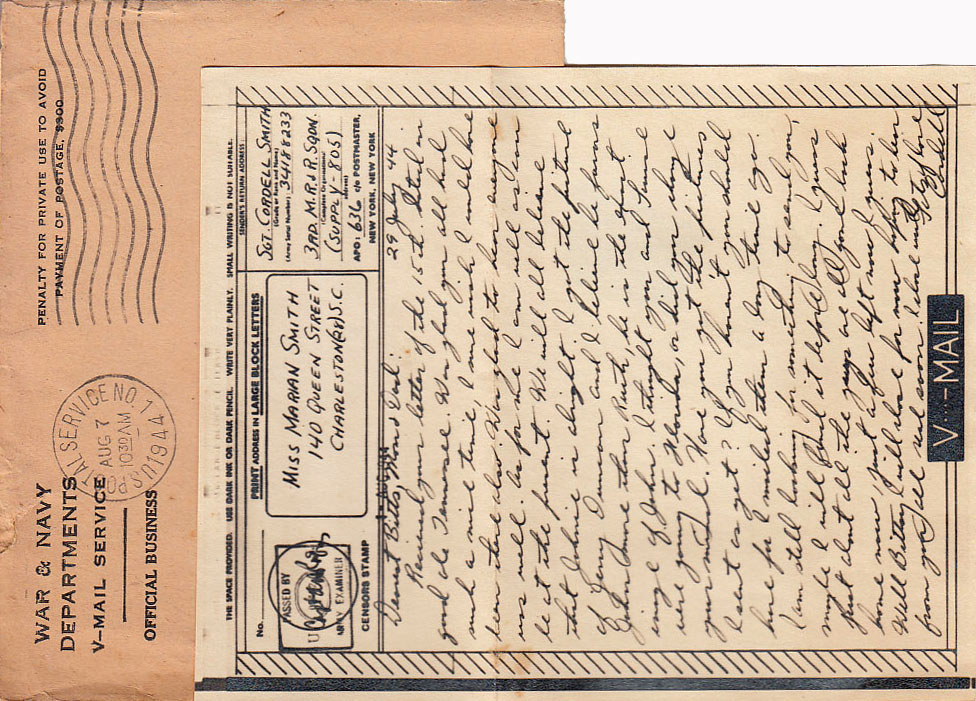 WAR & NAVY
DEPARTMENTS
V-MAIL SERVICE
OFFICIAL BUSINESS
U.S. POSTAL SERVICE NO. 1
AUG 7
10 30 AM
1944
PENALTY FOR PRIVATE USE TO AVOID
PAYMENT OF POSTAGE, $300
THE SPACE PROVIDED. USE DARK INK OR DARK PENCIL. WRITE VERY PLAINLY. SMALL WRITING IS NOT SUITABLE.
No.
PASSED BY
ARMY EXAMINER
CENSORS STAMP
PRINT ADDRESS IN LARGE BLOCK LETTERS
MISS MARIAN SMITH
140 QUEEN STREET
CHARLESTON S.C.
SENDER'S RETURN ADDRESS
SGT. CORDELL SMITH
(Grade or Rate and Name)
34188233
(Army Serial Number)
3RD. M.R. & R. SQDN.
(Complete Organization)
(SUPPLY-805)
APO: 636 c/o POSTMASTER,
NEW YORK, NEW YORK
29 July 44
Dearest Bitts, Mom & Dad:
Received your letter of the 15th. Started in
good ole Tennessee. Was glad you all had
such a nice time, I sure wish I could have
been there also. Was glad to hear everyone
was well. As for me I am well as I can
be at the present. We will all believe
that Johnie is alright I got the picture
of Gerry Duncan and I believe he favors
John more than Ruth, he is the spirit
image of John. I thought you and June
were going to Florida, or did you have
your mind. Have you got the pictures
I sent as yet? If you haven't you should
have for I mailed them a long time ago.
I am still looking for something to send you,
maybe I will find it before long. I guess
just about all the guys are all gone back
home now, just a few left now I guess.
Well Bitsy I will close for now hoping to hear
from you all real soon. I close with
Lots of love
Cordell
V···—MAIL